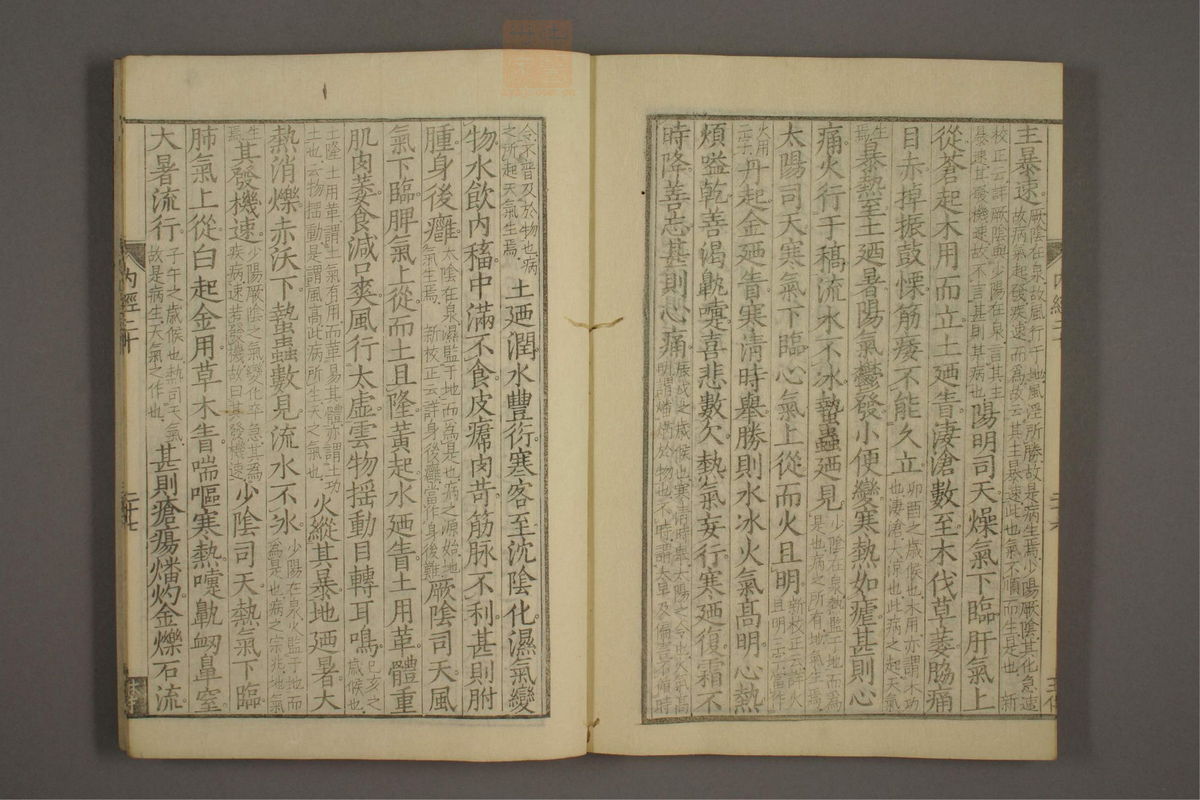 主暴速。厥陰在泉故風行于地風淫所勝故是病生焉少陽厥陰其化急速故病氣起發疾速而為故云其主暴速此也氣不順而生是也 新
校正云詳厥陰與少陽在泉言其主暴速其發機速故不言甚則某病也 陽明司天燥氣下臨肝氣上
從蒼起木用而立土廼眚淒滄數至木伐草萎脇痛
目赤掉振鼓慄筋痿不能久立卯酉之歲候也木用亦謂木功也淒滄大涼也此病之起天氣
生焉暴熱至土廼暑陽氣鬱發小便變寒熱如瘧甚則心
痛火行于稿流水不冰蟄蟲廼見少陰在泉熱監于地而為是也病之所有地氣生焉
太陽司天寒氣下臨心氣上從而火且明新校正云詳火且明三字當作
火用二字丹起金廼眚寒清時舉勝則水冰火氣高明心熱
煩嗌乾善渴鼽嚏喜悲數欠熱氣妄行寒廼復霜不
時降善忘甚則心痛辰戌之歲候也寒清時舉太陽之令也火氣高明謂燔焫於物也不時謂太早及偏害不循時
令不普及於物也病之所起天氣生焉 土廼潤水豐衍寒客至沈陰化濕氣變
物水飲內稸中滿不食皮𤸷肉苛筋脉不利甚則胕
腫身後癰太陰在泉濕監于地而為是也病之源始地氣生焉 新校正云詳身後癰當作身後難厥陰司天風
氣下臨脾氣上從而土且隆黃起水廼眚土用革體重
肌肉萎食減口爽風行太虛雲物搖動目轉耳鳴巳亥之歲候也
土隆土用革謂土氣有用而革易其體亦謂土功土也云物搖動是謂風高此病所生天之氣也 火縱其暴地廼暑大
熱消爍赤沃下蟄蟲數見流水不冰少陽在泉火監于地而為是也病之宗兆地氣
生焉其發機速少陽厥陰之氣變化卒急其為疾病速若發機故曰其發機速少陰司天熱氣下臨
肺氣上從白起金用草木眚喘嘔寒熱嚏鼽衂鼻窒
大暑流行子午之歲候也熱司天氣故是病生天氣之作也甚則瘡瘍燔灼金爍石流
內經二十
二十七